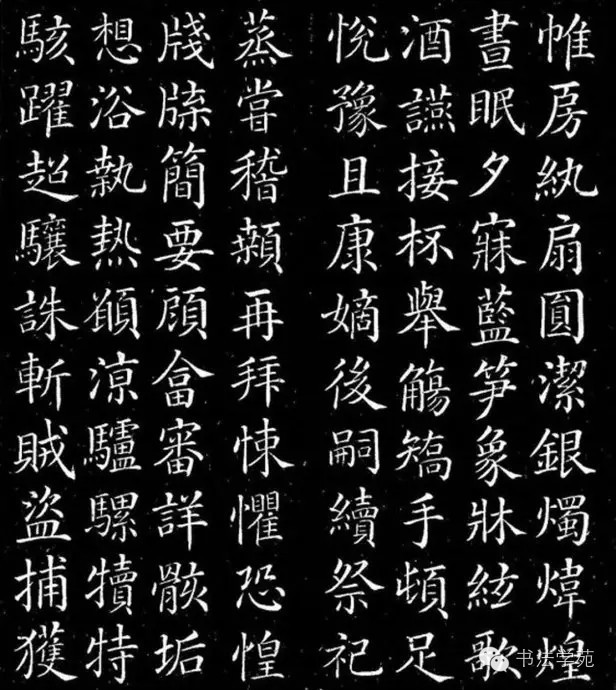 帷房紈扇圓潔銀燭煒煌
晝眠夕寐藍笋象牀絃歌
酒讌接杯舉觴矯手頓足
悅豫且康嫡後嗣續祭祀
蒸嘗稽顙再拜悚懼恐惶
牋牒簡要顧答審詳骸垢
想浴執熱願涼驢騾犢特
駭躍超驤誅斬賊盜捕獲
书法学苑